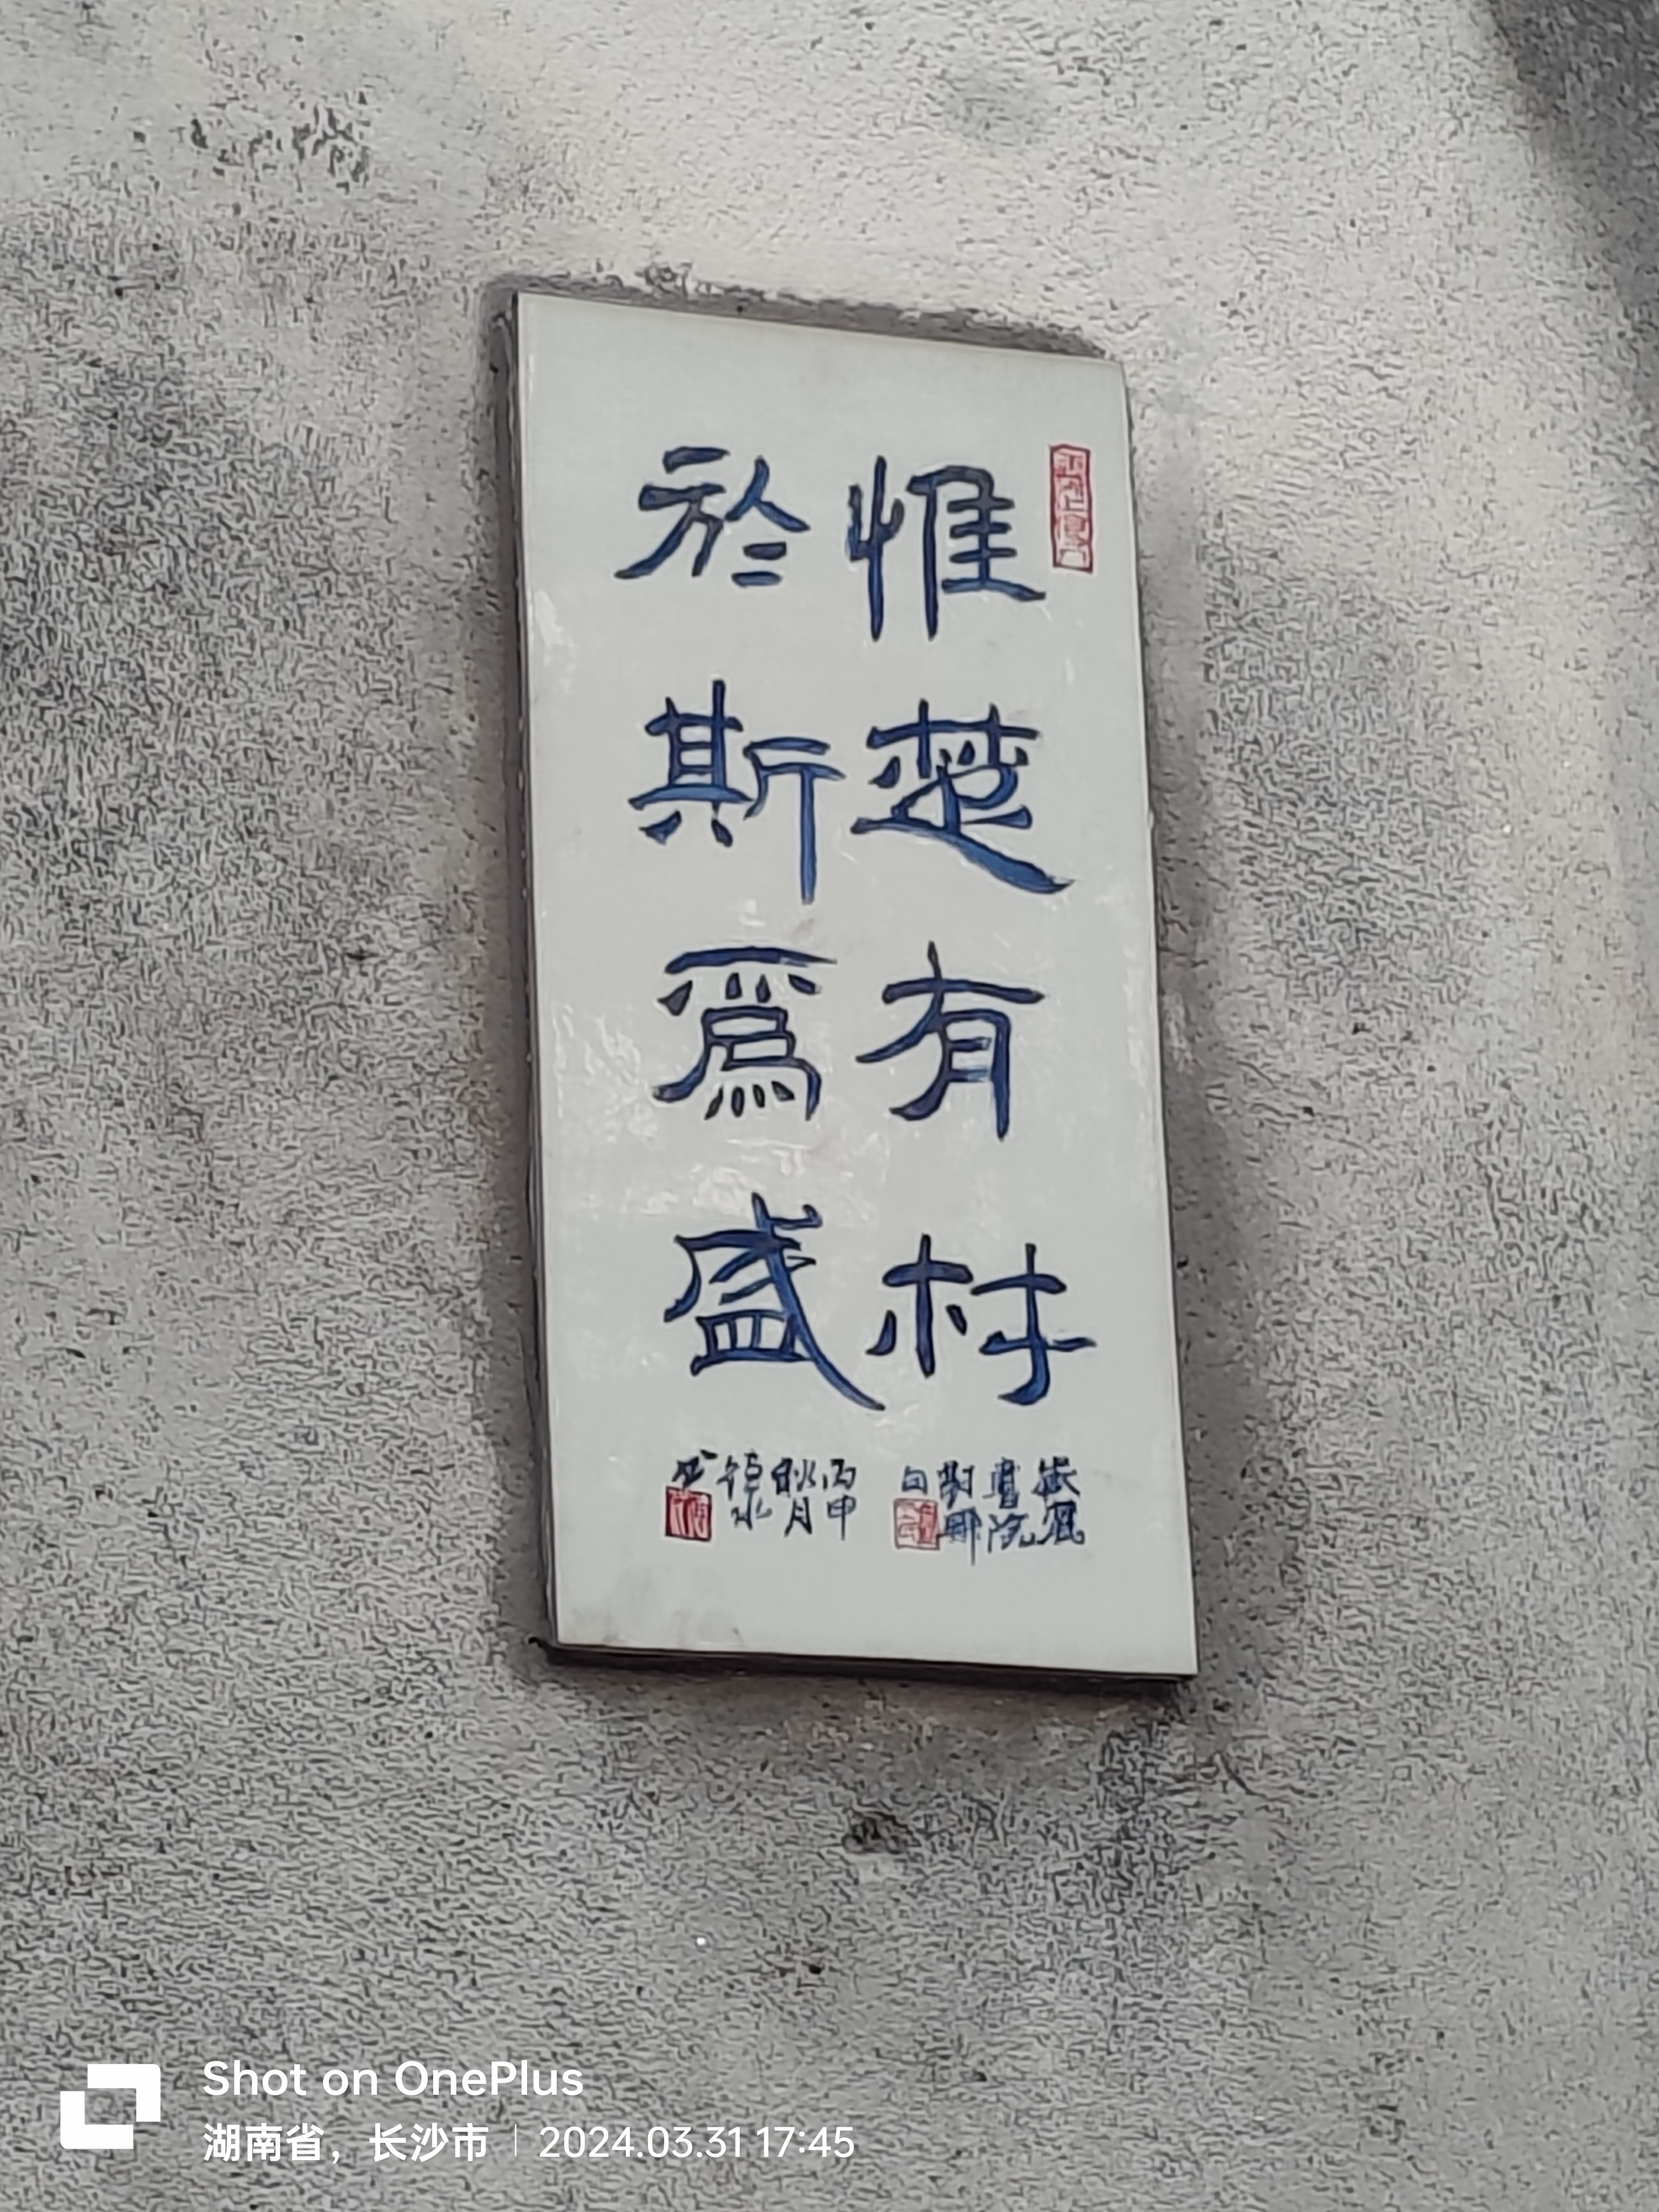 惟楚有材
於斯爲盛
丙申
秋月
Shot on OnePlus
湖南省，长沙市 | 2024.03.31 17:45